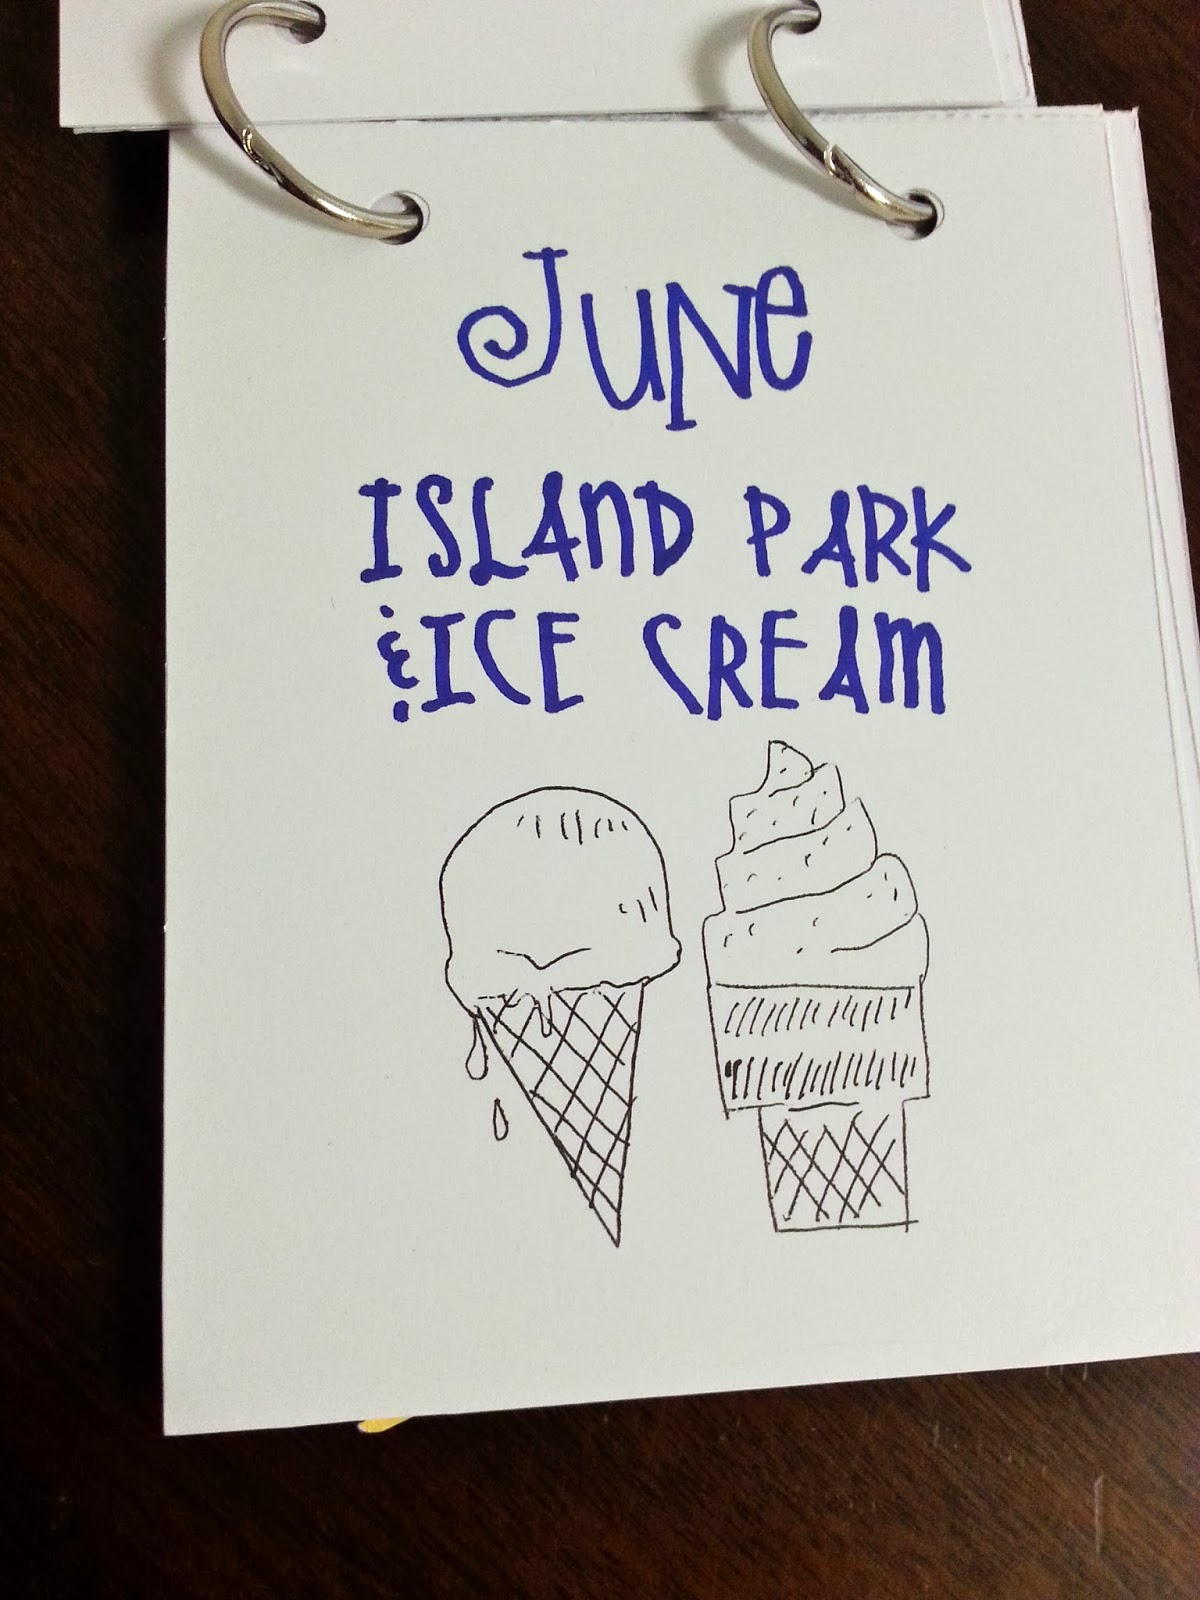 June
ISLAnD PARK
& ICE CREAm